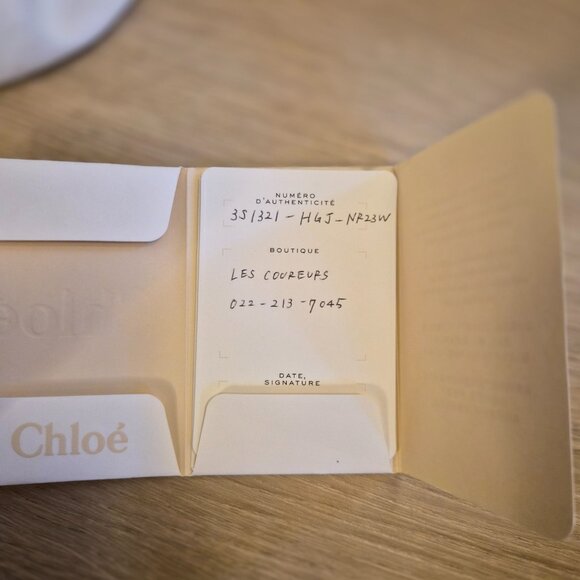 NUMÉRO
D'AUTHENTICITÉ
3S1321-HGJ-NF23W
BOUTIQUE
LES COUREURS
022-213-7045
DATE,
SIGNATURE
Chloé